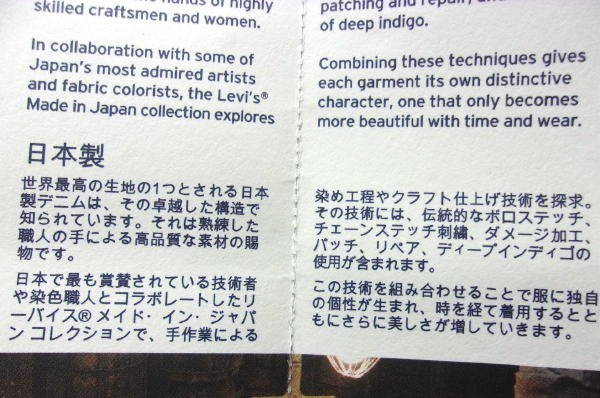 the hands of highly
skilled craftsmen and women.
In collaboration with some of
Japan's most admired artists
and fabric colorists, the Levi's®
Made in Japan collection explores
日本製
世界最高の生地の1つとされる日本
製デニムは、その卓越した構造で
知られています。それは熟練した
職人の手による高品質な素材の賜
物です。
日本で最も賞賛されている技術者
や染色職人とコラボレートしたリ
ーバイス® メイド・イン・ジャパ
ン コレクションで、手作業による
patching and repair, and
of deep indigo.
Combining these techniques gives
each garment its own distinctive
character, one that only becomes
more beautiful with time and wear.
染め工程やクラフト仕上げ技術を探求。
その技術には、伝統的なボロステッチ、
チェーンステッチ刺繍、ダメージ加工、
パッチ、リペア、ディープインディゴの
使用が含まれます。
この技術を組み合わせることで服に独自
の個性が生まれ、時を経て着用するとと
もにさらに美しさが増していきます。